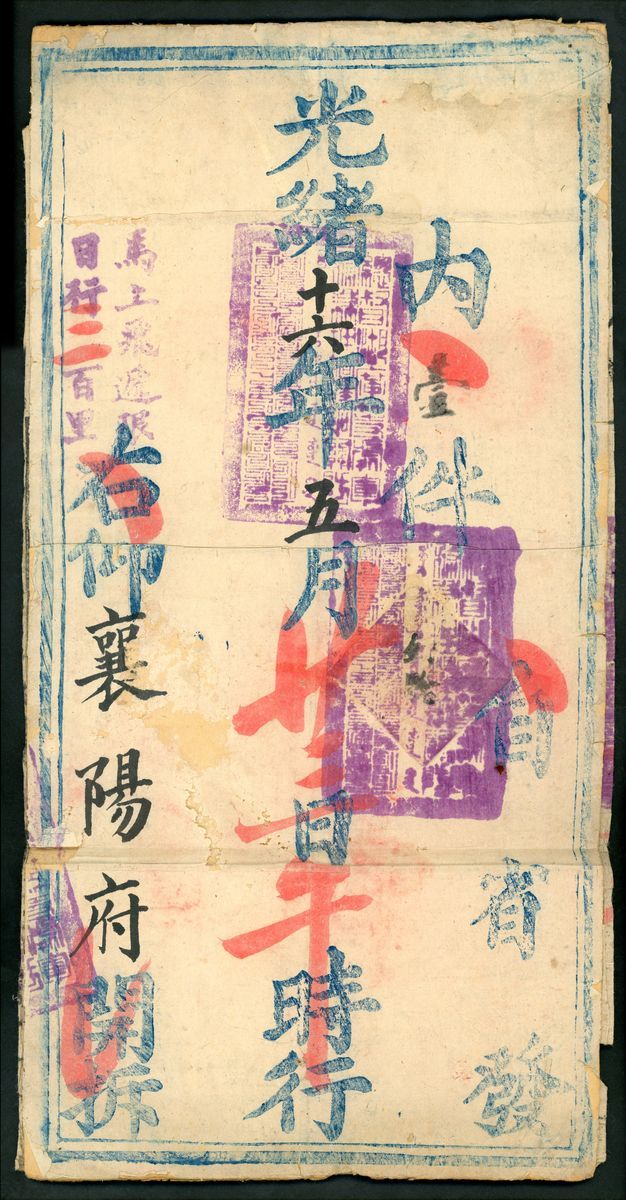 自省發
內壹件
光緒十六年五月廿二日午時行
右仰襄陽府開拆
馬上飛遞限
日行二百里